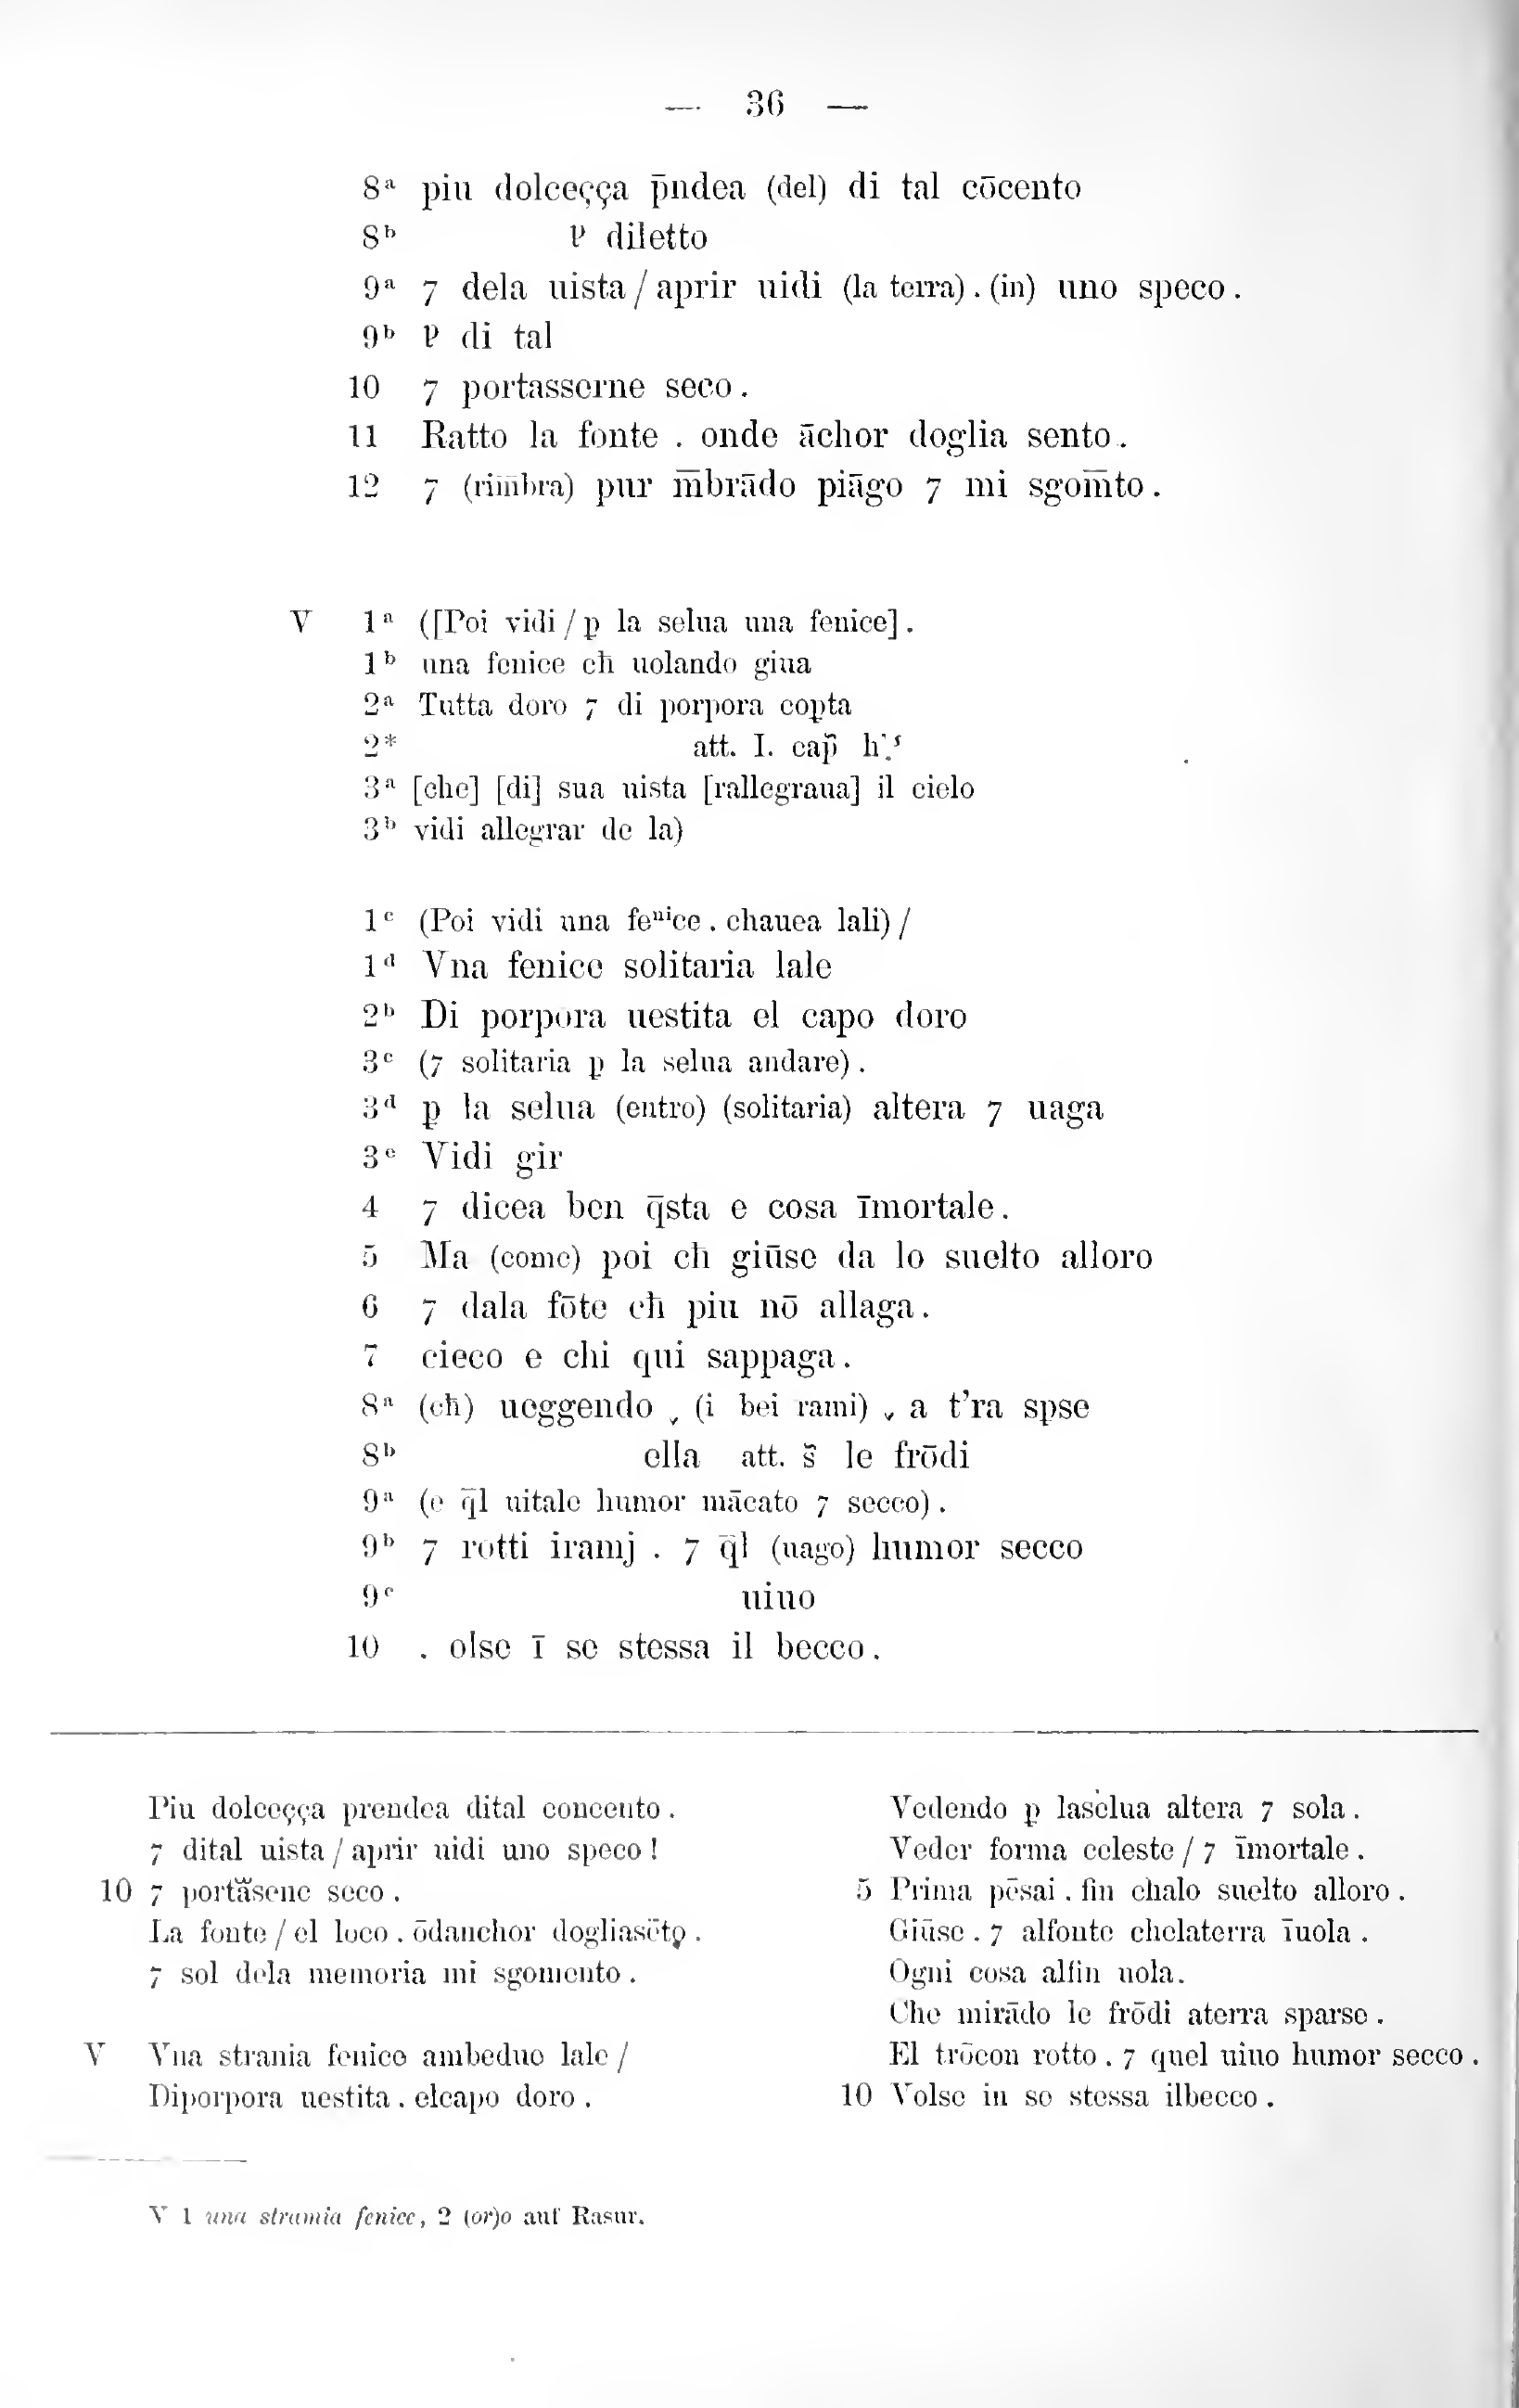 — 36 —
8a piu dolceçça p̄ndea (del) di tal cōcento
8b ꝩ diletto
9a 7 dela uista / aprir uidi (la terra) . (in) uno speco .
9b ꝩ di tal
10 7 portasserne seco .
11 Ratto la fonte . onde āchor doglia sento .
12 7 (rim̄bra) pur m̄brādo piāgo 7 mi sgom̄to .
V 1a ([Poi vidi / p̱ la selua una fenice] .
1b una fenice cħ uolando giua
2a Tutta doro 7 di porpora cop̱ta
2* att. I. cap̄
3a [che] [di] sua uista [rallegraua] il cielo
3b vidi allegrar de la)
1c (Poi vidi una fenice . chauea lali) /
1d Vna fenice solitaria lale
2b Di porpora uestita el capo doro
3c (7 solitaria p̱ la selua andare) .
3d p̱ la selua (entro) (solitaria) altera 7 uaga
3e Vidi gir
4 7 dicea ben q̄sta e cosa īmortale .
5 Ma (come) poi cħ giūse da lo suelto alloro
6 7 dala fōte cħ piu nō allaga .
7 cieco e chi qui sappaga .
8a (cħ) ueggendo ˬ (i bei rami) ˬ a t’ra spse
8b ella att. s̄ le frōdi
9a (e q̄l uitale humor mācato 7 secco) .
9b 7 rotti iramj . 7 q̄l (uago) humor secco
9c uiuo
10 . olse ī se stessa il becco .
Piu dolceçça prendea dital concento .
7 dital uista / aprir uidi uno speco !
10 7 portasene seco .
La fonte / el loco . ōdanchor dogliasēto .
7 sol dela memoria mi sgomento .
V Vna strania fenice ambeduo lale /
Diporpora uestita . elcapo doro .
Vedendo p̱ laselua altera 7 sola .
Veder forma celeste / 7 īmortale .
5 Prima pēsai . fin chalo suelto alloro .
Giūse . 7 alfonte chelaterra īuola .
Ogni cosa alfin uola .
Che mirādo le frōdi aterra sparse .
El trōcon rotto . 7 quel uiuo humor secco .
10 Volse in se stessa ilbecco .
V 1 una stramia fenice, 2 (or)o auf Rasur.